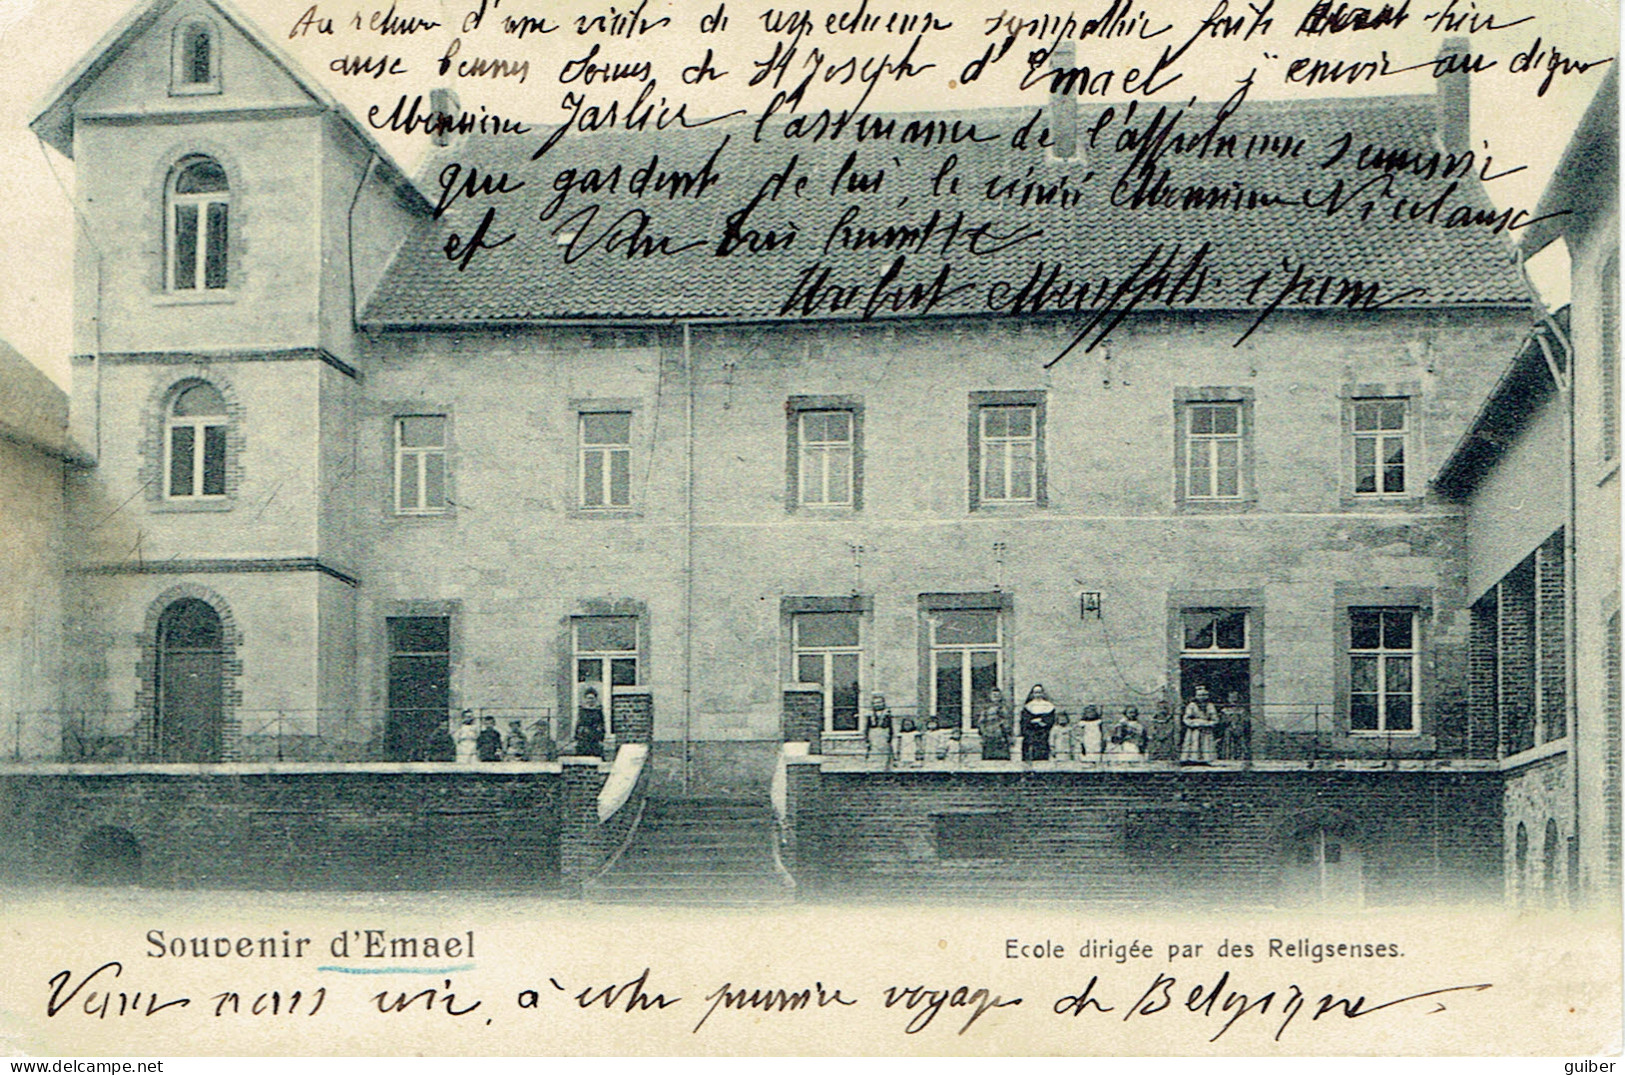 Au retour d'une visite de respectueuse sympathie faite avant-hier
aux bonnes Sœurs de St Joseph d'Emael, j'envoie au digne
Monsieur Jarlier, l'assurance de l'affectueux souvenir
que gardent de lui, le vénéré Monsieur Nicolaus
et Votre très humble
Hubert fils
Souvenir d'Emael
Ecole dirigée par des Religsenses.
Venez nous voir, à votre premier voyage de Belgique.
guiber